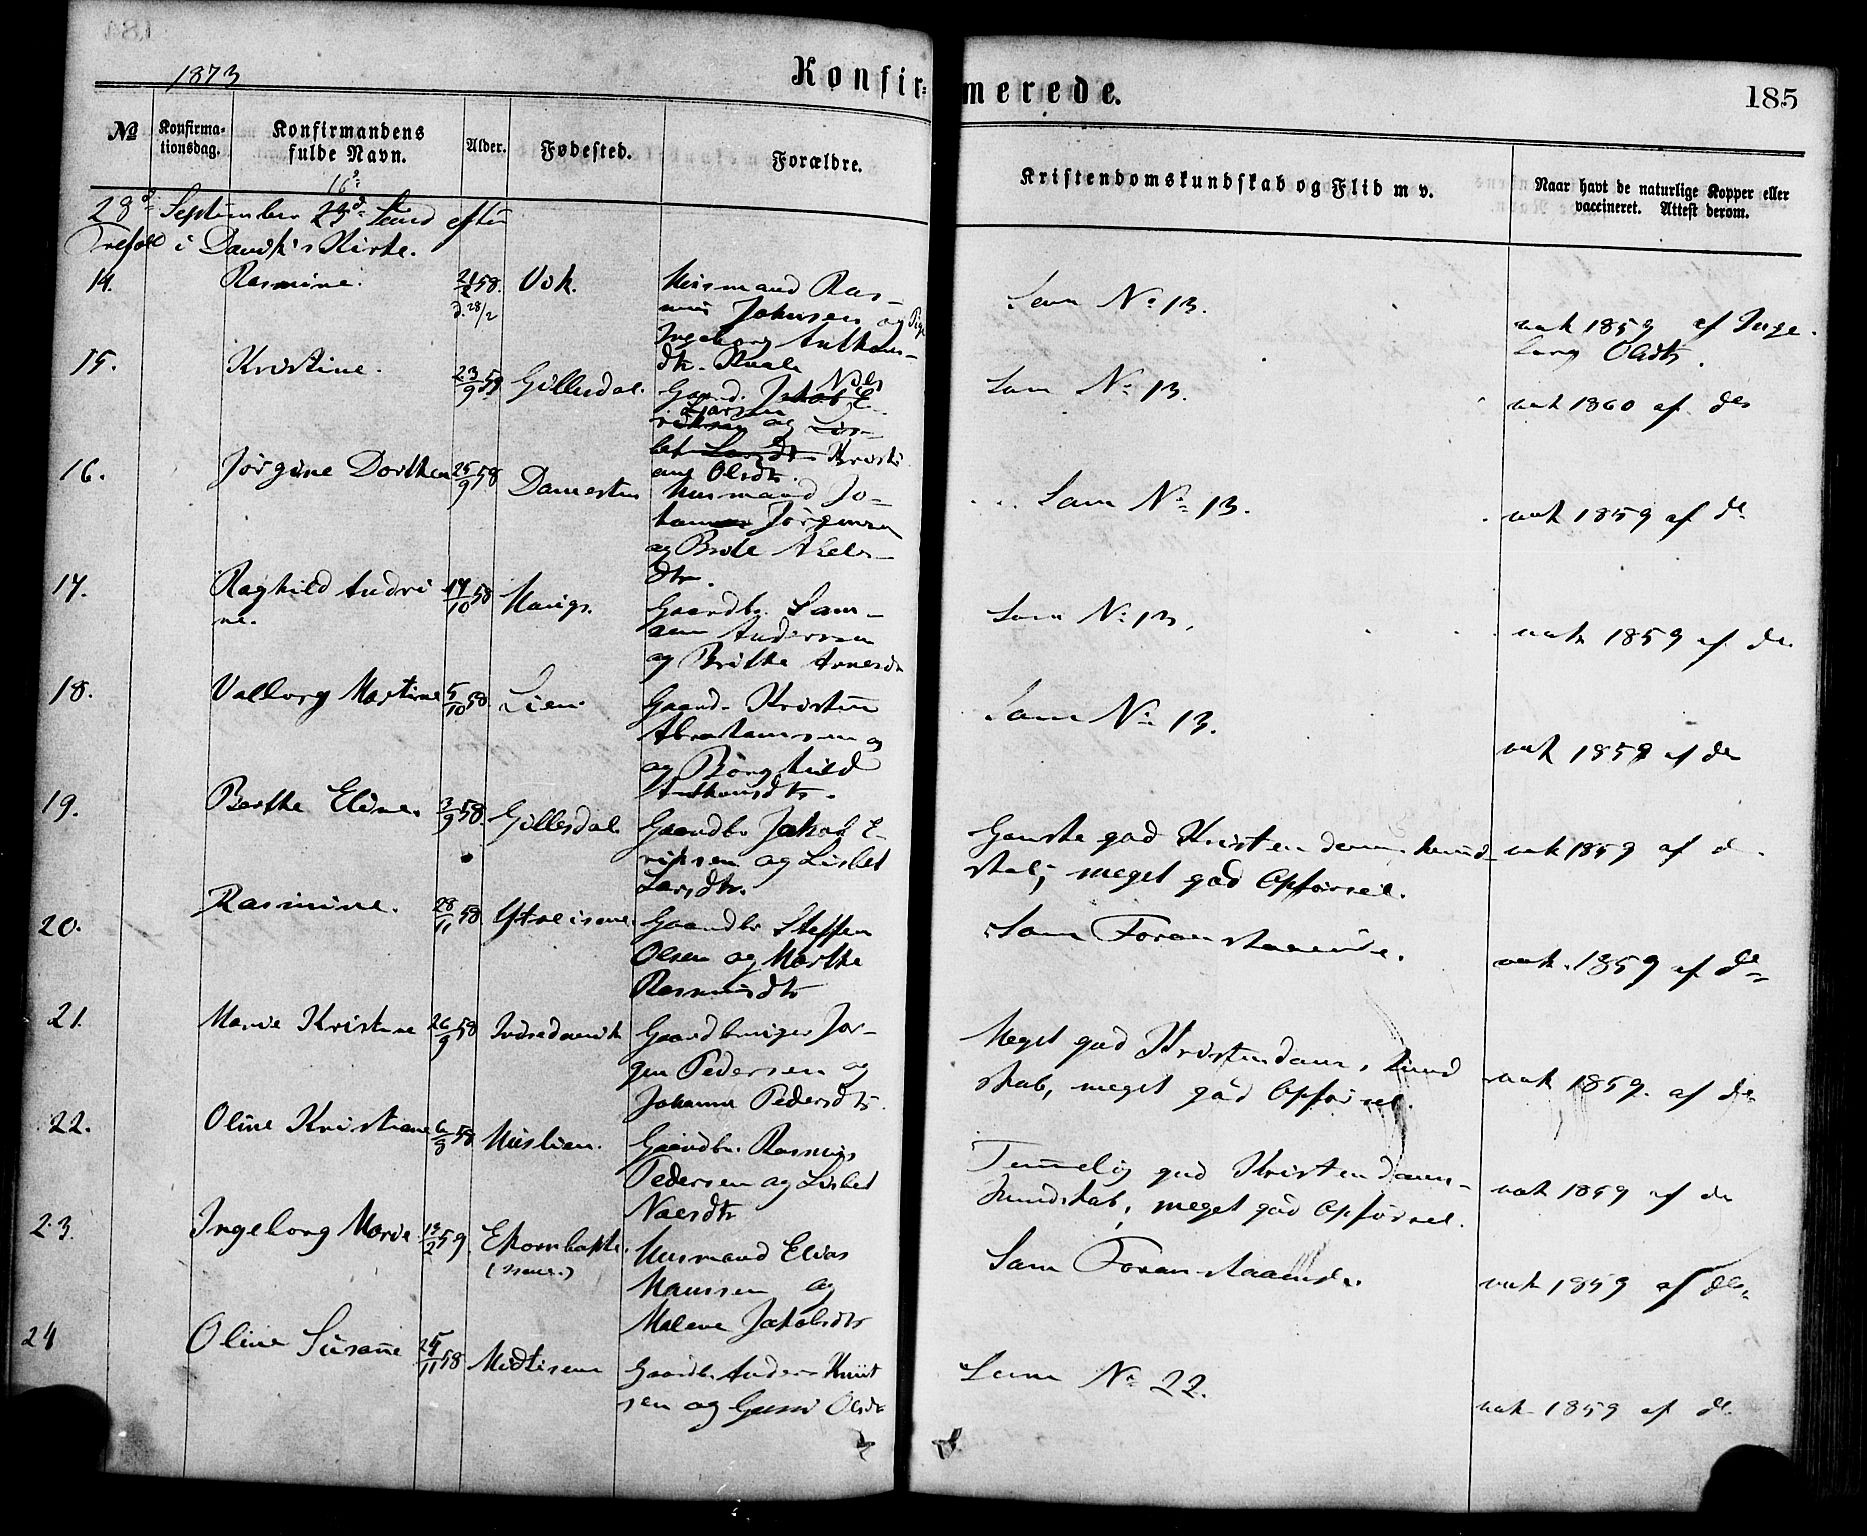 1873
Konfirmerede.
185
№ Konfirmationsdag. Konfirmandens fulde Navn. Alder. Fødested. Forældre. Kristendomskundskab og Flid m v. Naar havt de naturlige Kopper eller vaccineret. Attest derom.
28de September 16de Sønd efter
Trefold i Davik's Kirke.
14. Rasmine. 58. Vik. Husmand Ras-
mus Johnsen og Pige
Ingeborg Anthons-
dtr.
d. 28/2
Som No 13.
vak 1859 af Inge-
borg Olsdtr.
15. Kristine. 23/9 58 Gillesdal. Gaard. Jakob E- Nils
riksen Larsen og Lis-
bet Larsdtr Kristi
ane Olsdtr.
Som No 13.
vak 1860 af do
16. Jørgine Dorthea 25/9 58 Husmand Jo-
Jørgensen
og Brite
dtr.
Som No 13.
vak 1859 af do
17. Raghild Andri
ne. 14/10 58 Gaardbr. Sam-
sen Andersen
og Brithe Arnesdtr
Som No 13.
vak 1859 af do
18. Valborg Martine 5/10 58 Lien. Gaard. Kristen
Abrahamsen og
og Borghild
Anthonsdtr.
Som No 13.
vak 1859 af do
19. Berthe Eline. 3/9 58. Gillesdal. Gaardbr Jakob E-
riksen og Lisbet
Larsdtr.
Ganske god Kristendomskund-
skab, meget god Opførsel.
vak 1859 af do
20. Rasmine. 28/11 58 Ytreisene. Gaardbr Steffen
Olsen og Marthe
Rasmusdtr
Som Foranstaaende.
vak. 1859 af do
21. Marie Kristine 26/9 58 Indredavik Gaardbruger Jør-
gen Pedersen og
Johanne Pedersdtr.
Meget god Kristendomskund
skab, meget god Opførsel.
vak 1859. af do
22. Oline Kristiane 58 Muslien. Gaardbr. Rasmus
Pedersen og Lisbet
Temmelig god Kristendoms-
kundskab, meget god Opførsel.
vak 1859 af do
23. Ingeborg Marie 13/2 59. Husmand Elias
Hansen og
Malene Jakobsdtr
Som Foranstaaende.
vak 1859 af do
24 Oline Susanne 25/11 58 Midtisene Gaardb. Anders Knut
sen og Olsdtr
Som No 22.
vak 1859 af do